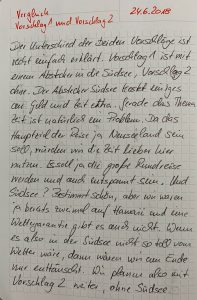 Vergleich
Vorschlag 1 und Vorschlag 2
24.6.2018
Der Unterschied der beiden Vorschläge ist
recht einfach erklärt. Vorschlag 1 ist mit
einem Abstecher in die Südsee, Vorschlag 2
ohne. Der Abstecher Südsee kostet einiges
an Geld und Zeit extra. Gerade das Thema
Zeit ist natürlich ein Problem. Da das
Hauptziel der Reise ja Neuseeland sein
soll, würden wir die Zeit lieber hier
nutzen. Es soll ja die große Rundreise
werden und auch entspannt sein. Und
Südsee? Bestimmt schön, aber wir waren
ja bereits zweimal auf Hawaii und eine
Wettergarantie gibt es auch nicht. Wenn
es also in der Südsee nicht so toll vom
Wetter wäre, dann wären wir am Ende
nur enttäuscht. Wir planen also mit
Vorschlag 2 weiter, ohne Südsee.